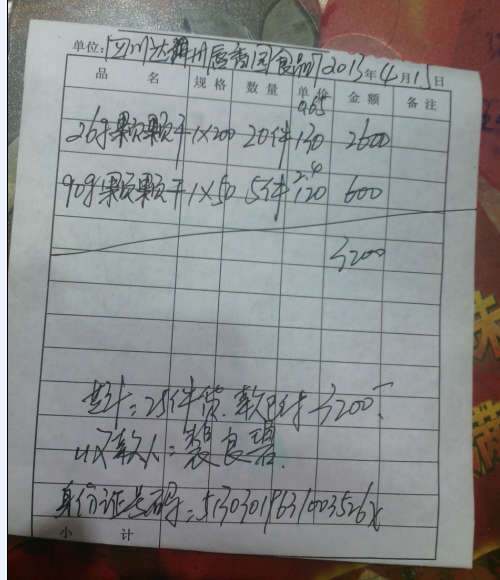 单位:四川达州唇香园食品厂2013年4月15日
品 名 规 格 数 量 单 价 金 额 备 注
0.65
26g颗颗 1×200 20件 130 2600
2.4
90g颗颗 1×50 5件 120 600
3200
共计:25件货.款已付3200
收款人:良碧.
身份证号码:
小 计